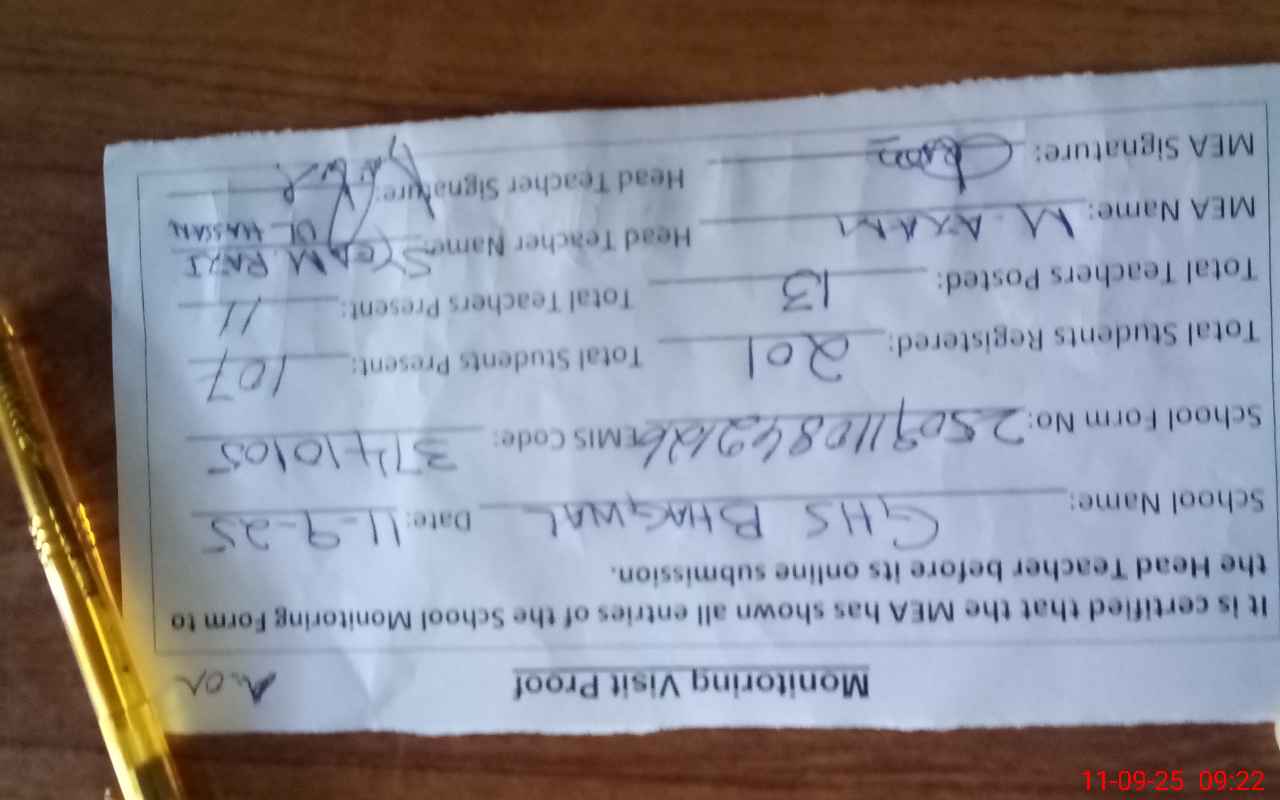 Monitoring Visit Proof
It is certified that the MEA has shown all entries of the School Monitoring Form to
the Head Teacher before its online submission.
School Name: GHS BHAGWAL Date: 11-9-25
School Form No: EMIS Code: 37410105
Total Students Registered: 201 Total Students Present: 107
Total Teachers Posted: 13 Total Teachers Present: 11
MEA Name: M. AZAM Head Teacher Name: SYED M. RAZI
UL-HASSAN
MEA Signature: Head Teacher Signature:
11-09-25 09:22